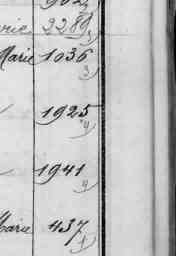 902
erie 2289
Marie 1036
3
1925
4
1941
4
Marie 437
4